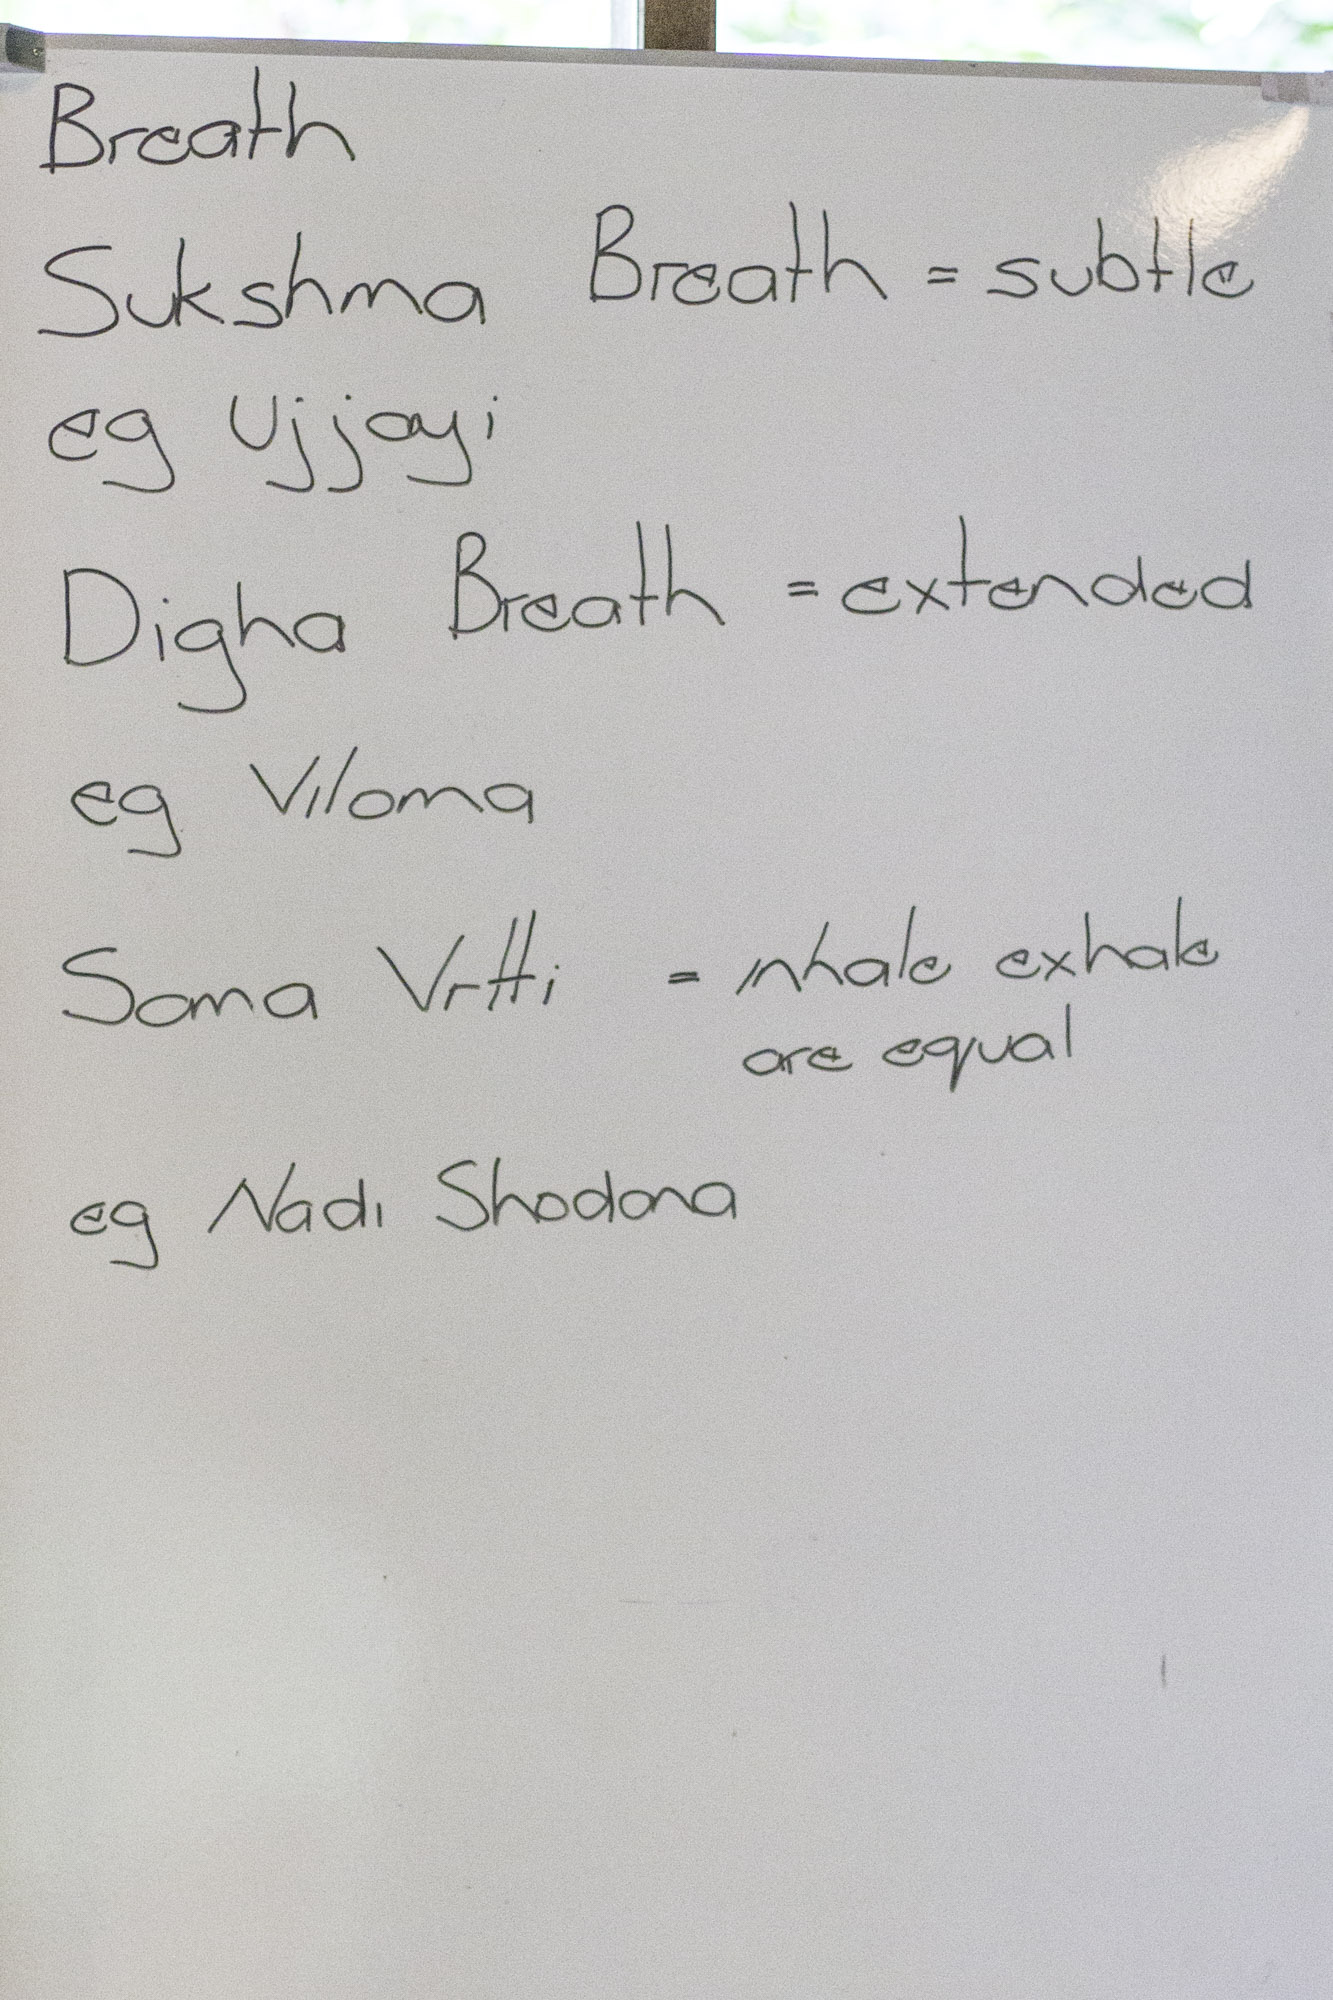 Breath
Sukshma Breath = subtle
eg Ujjayi
Digha Breath = extended
eg Viloma
Sama Vrtti = inhale exhale
are equal
eg Nadi Shodana